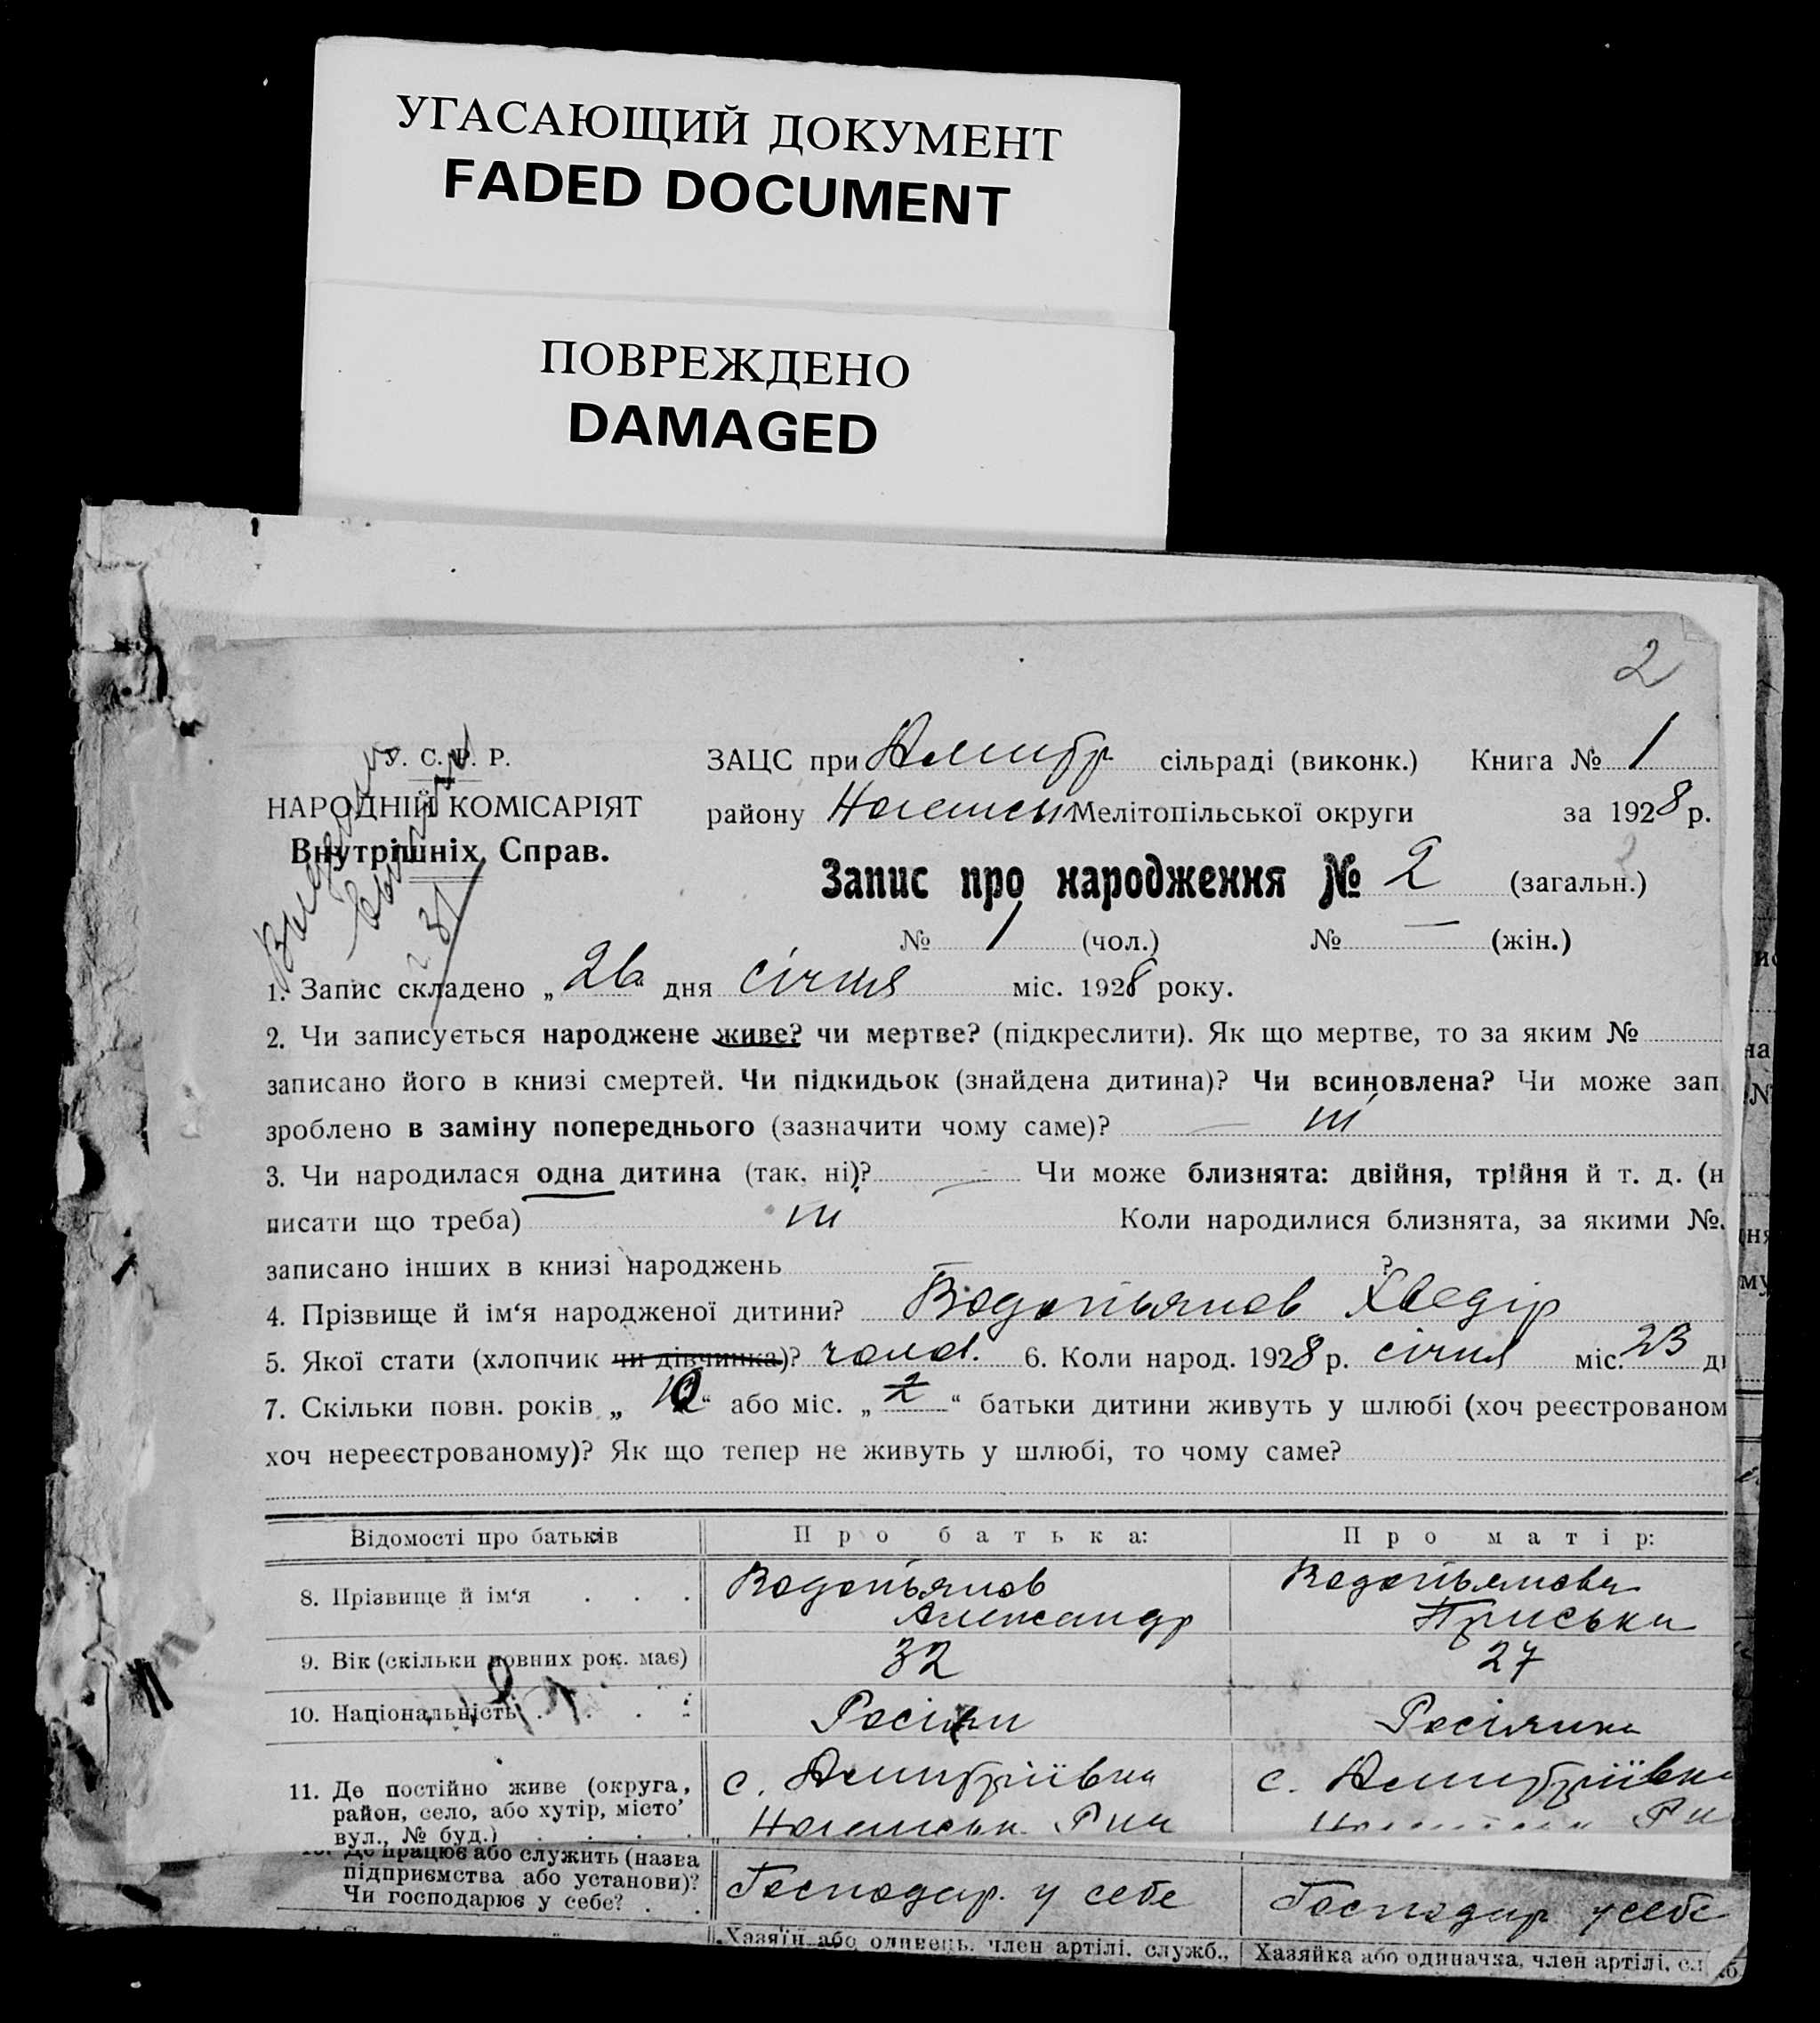 УГАСАЮЩИЙ ДОКУМЕНТ
FADED DOCUMENT
ПОВРЕЖДЕНО
DAMAGED
2
У. С. Р. Р.
НАРОДНІЙ КОМІСАРІЯТ
Внутрішніх Справ.
ЗАЦС при Дмитр сільраді (виконк.) Книга № 1
району Мелітопільської округи за 1928 р.
Запис про народження № 2 (загальн.)
№ 1 (чол.) № — (жін.)
1. Запис складено „26“ дня січня міс. 1928 року.
2. Чи записується народжене живе? чи мертве? (підкреслити). Як що мертве, то за яким №
записано його в книзі смертей. Чи підкидьок (знайдена дитина)? Чи всиновлена? Чи може зап
зроблено в заміну попереднього (зазначити чому саме)? ні
3. Чи народилася одна дитина (так, ні)? Чи може близнята: двійня, трійня й т. д. (н
писати що треба) ні Коли народилися близнята, за якими №.
записано інших в книзі народжень ?
4. Прізвище й ім‘я народженої дитини? Водопьянов Хведір
5. Якої стати (хлопчик чи дівчинка)? чолов. 6. Коли народ. 1928 р. січня міс. 23 д
7. Скільки повн. років „ “ або міс. „ “ батьки дитини живуть у шлюбі (хоч реєстрованом
хоч нереєстрованому)? Як що тепер не живуть у шлюбі, то чому саме?
Відомості про батьків Про батька: Про матір:
8. Прізвище й ім‘я . . . Водопьянов Александр Водопьянова Приська
9. Вік (скільки повних рок. має) 32 27
10. Національність . . . . Росіян Росіянка
11. Де постійно живе (округа, с. Дмитріївка с. Дмитріївка
район, село, або хутір, місто,
вул., № буд.) . . . .
Де працює або служить (назва
підприємства або установи)? Господар. у себе Господар у себе
Чи господарює у себе? . .
Хазяїн або одинець, член артілі, служб., Хазяйка або одиначка, член артілі, сл